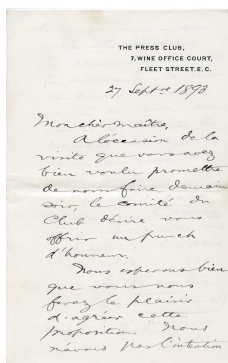 THE PRESS CLUB,
7, WINE OFFICE COURT,
FLEET STREET. E.C.
27 Septre 1893
Mon cher Maître,
A l'occasion de la
visite que vous avez
bien voulu promettre
de nous faire demain
soir, le comité du
Club désire vous
offrir un punch
d'honneur.
Nous espérons bien
que vous nous
ferez le plaisir
d'agréer cette
proposition. Nous
n'avons pas l'intention